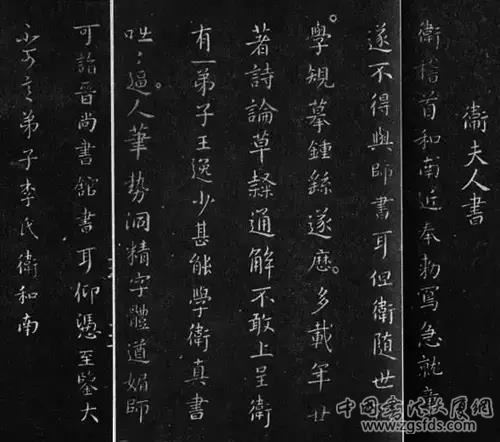 衛夫人書
衛稽首和南近奉勅寫急就章
遂不得與師書耳但衛隨世
學規摹鍾繇遂歷多載年廿
著詩論草隸通解不敢上呈衛
有一弟子王逸少甚能學衛真書
咄〻逼人筆勢洞精字體遒媚師
可詣晉尚書館書耳仰憑至鑒大
不可言弟子李氏衛和南
中国书法发展网
www.zgsfds.com